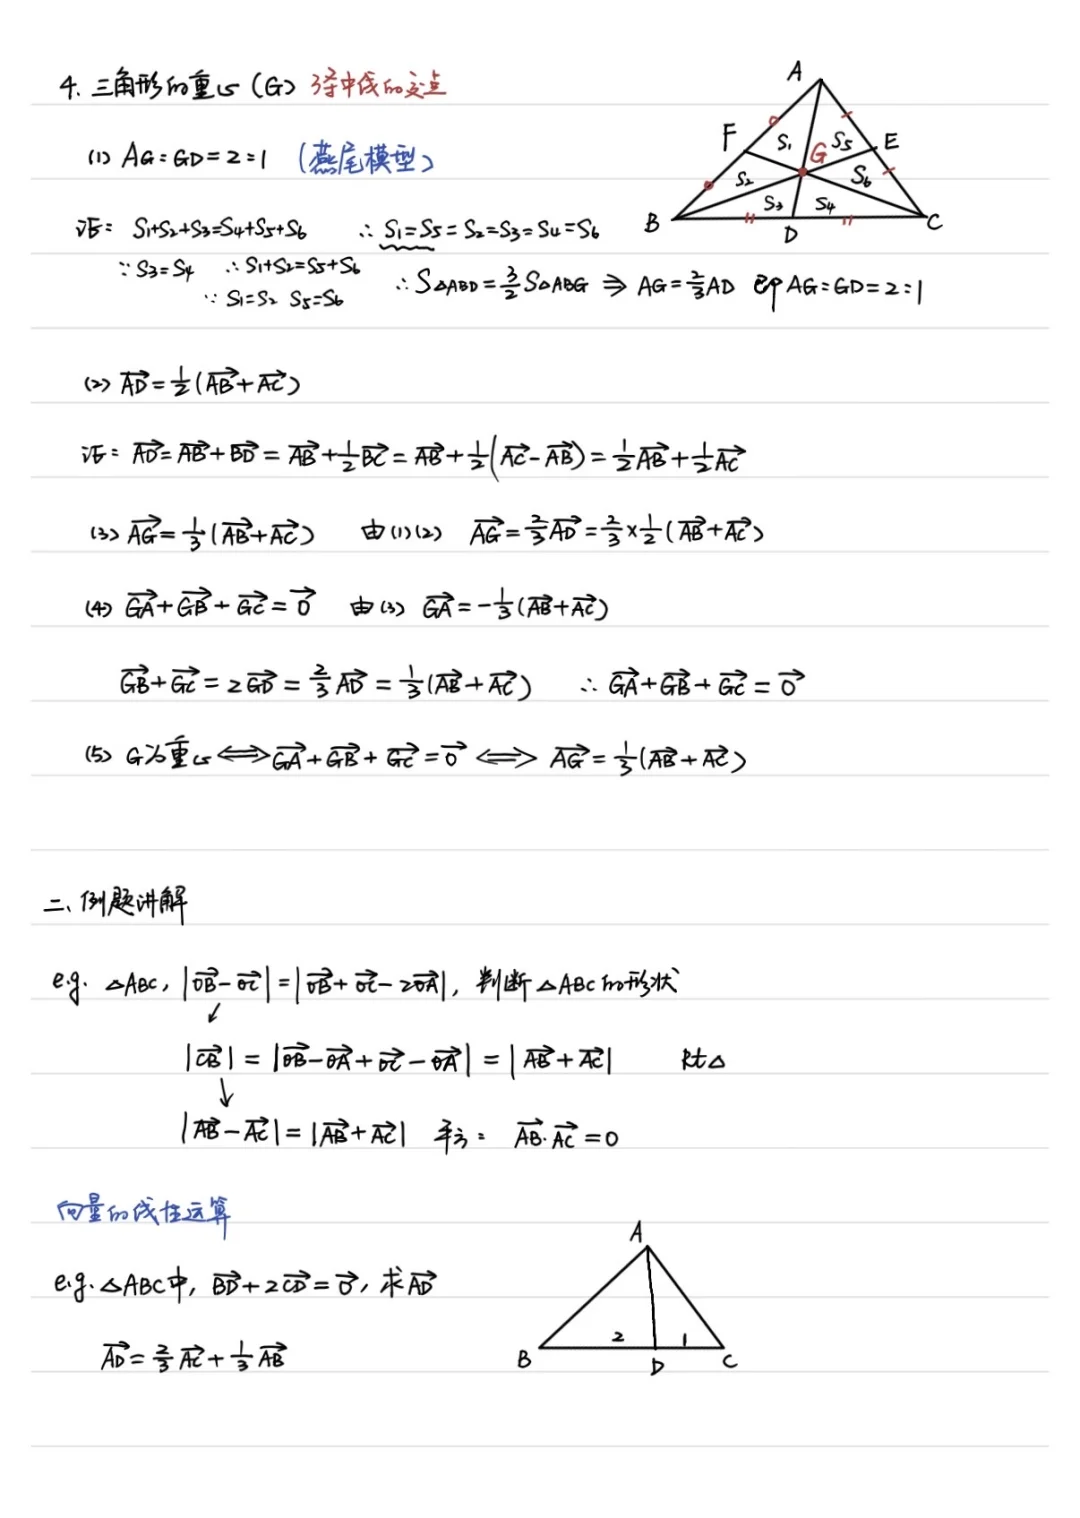 4. 三角形的重心(G) 3条中线的交点
(1) AG:GD=2:1 (燕尾模型)
证: S₁+S₂+S₃=S₄+S₅+S₆ ∴ S₁=S₅=S₂=S₃=S₄=S₆
∵ S₃=S₄ ∴ S₁+S₂=S₅+S₆ ∴ S△ABD=3/2 S△ABG ⇒ AG=2/3AD 即AG:GD=2:1
∵ S₁=S₂ S₅=S₆
A
F S₁ S₅ E
G
S₂ S₆
S₃ S₄
B D C
(2) AD⃗=1/2(AB⃗+AC⃗)
证: AD⃗=AB⃗+BD⃗=AB⃗+1/2BC⃗=AB⃗+1/2(AC⃗-AB⃗)=1/2AB⃗+1/2AC⃗
(3) AG⃗=1/3(AB⃗+AC⃗) 由(1)(2) AG⃗=2/3AD⃗=2/3×1/2(AB⃗+AC⃗)
(4) GA⃗+GB⃗+GC⃗=0⃗ 由(3) GA⃗=-1/3(AB⃗+AC⃗)
GB⃗+GC⃗=2GD⃗=2/3AD⃗=1/3(AB⃗+AC⃗) ∴ GA⃗+GB⃗+GC⃗=0⃗
(5) G为重心⟺GA⃗+GB⃗+GC⃗=0⃗⟺AG⃗=1/3(AB⃗+AC⃗)
二、例题讲解
e.g. △ABC, |OB⃗-OC⃗|=|OB⃗+OC⃗-2OA⃗|, 判断△ABC的形状
↙
|CB⃗|=|OB⃗-OA⃗+OC⃗-OA⃗|=|AB⃗+AC⃗| Rt△
↓
|AB⃗-AC⃗|=|AB⃗+AC⃗| 平方: AB⃗·AC⃗=0
向量的线性运算
e.g. △ABC中, BD⃗+2CD⃗=0⃗, 求AD⃗
AD⃗=2/3AC⃗+1/3AB⃗
A
2 1
B D C